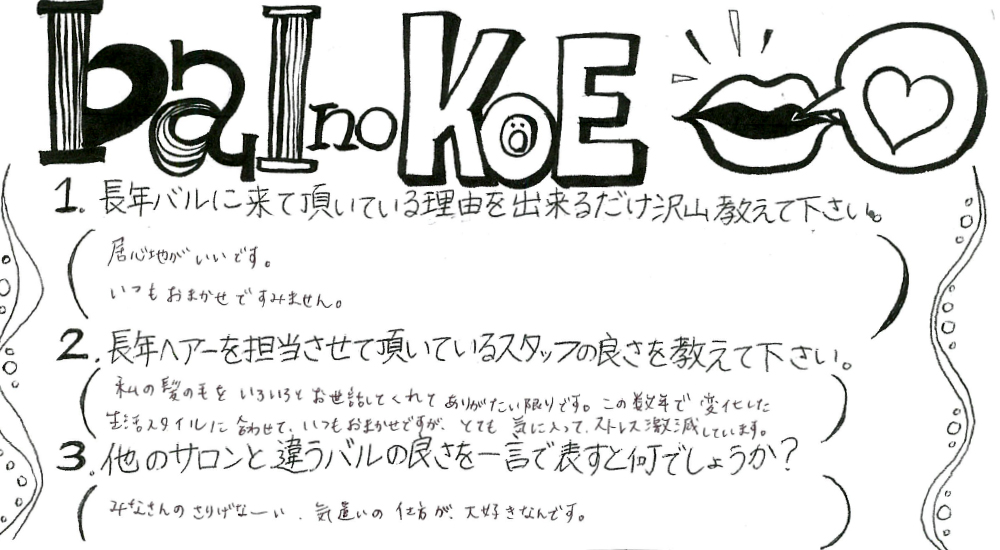 Bal no KoE
1. 長年バルに来て頂いている理由を出来るだけ沢山教えて下さい。
居心地がいいです。
いつもおまかせですみません。
2. 長年ヘアーを担当させて頂いているスタッフの良さを教えて下さい。
私の髪の毛をいろいろとお世話してくれてありがたい限りです。この数年で変化した
生活スタイルに合わせて、いつもおまかせですが、とても気に入って、ストレス激減しています。
3. 他のサロンと違うバルの良さを一言で表すと何でしょうか?
みなさんのさりげなーい、気遣いの仕方が、大好きなんです。